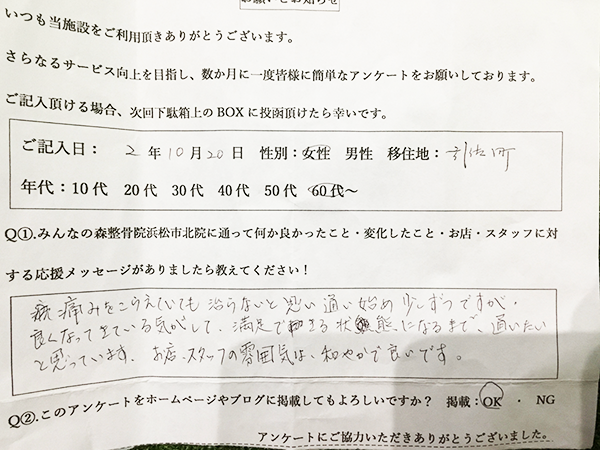 お願いとお知らせ
いつも当施設をご利用頂きありがとうございます。
さらなるサービス向上を目指し、数か月に一度皆様に簡単なアンケートをお願いしております。
ご記入頂ける場合、次回下駄箱上のBOXに投函頂けたら幸いです。
ご記入日: 2 年 10 月 20 日 性別:女性 男性 移住地: 引佐町
年代:10代 20代 30代 40代 50代 60代~
Q①.みんなの森整骨院浜松市北院に通って何か良かったこと・変化したこと・お店・スタッフに対
する応援メッセージがありましたら教えてください!
痛みをこらえていても治らないと思い通い始め少しずつですが、
良くなってきている気がして、満足できる状態になるまで、通いたい
と思っています。お店、スタッフの雰囲気は、和やかで良いです。
Q②.このアンケートをホームページやブログに掲載してもよろしいですか? 掲載:OK ・ NG
アンケートにご協力いただきありがとうございました。